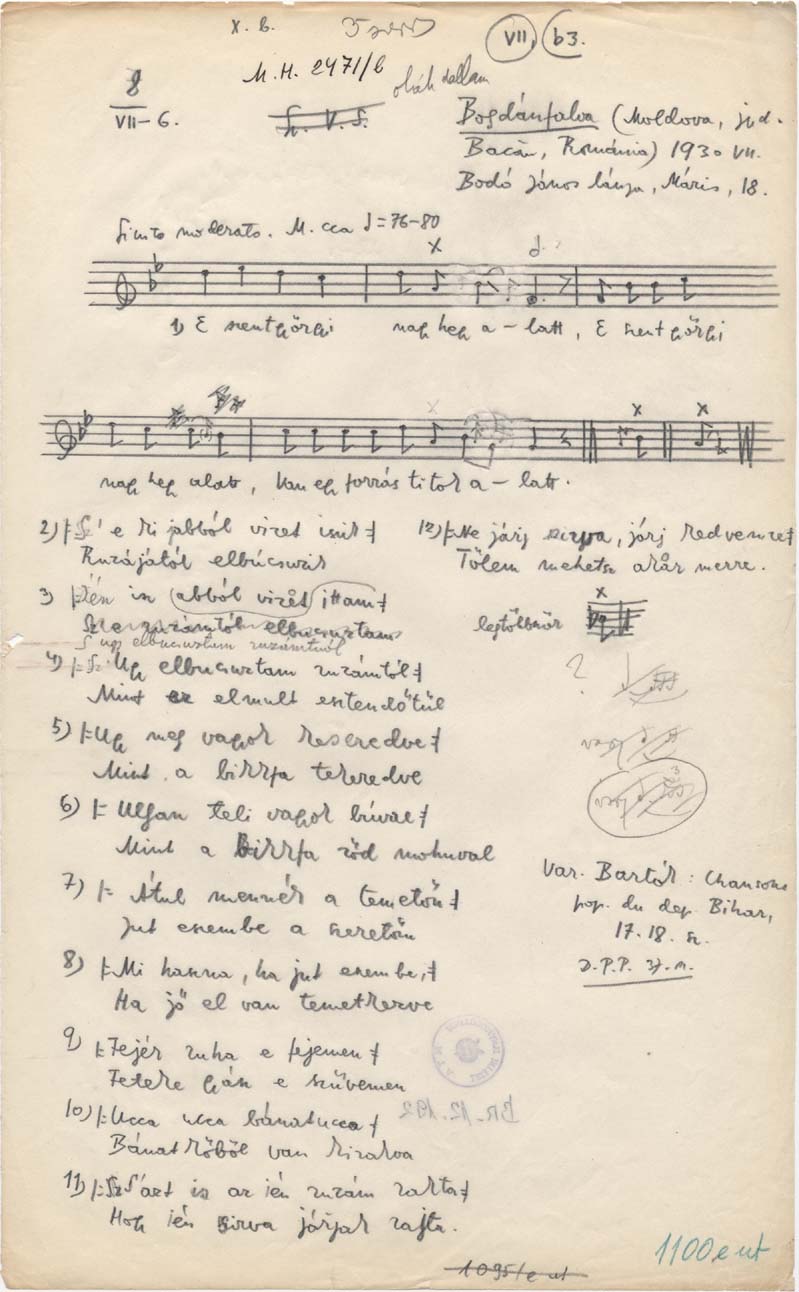 x. b.
VII, b3.
M. H. 2471/b
oláh dallam
8
VII–6.
Bogdánfalva (Moldova, jud.
Bacău, Románia) 1930 VII.
Bodó János lánya, Máris, 18.
Giusto moderato. M. cca ♩=76–80
1) E szentgörgyi nagy hegy a–latt, E szentgörgyi
nagy hegy alatt, Van egy forrás titok a–latt.
2) S' e ki jabból vizet iszik
Ruzájától elbúcszik
3) Ién is abból vizet ittam
S úgy elbucsuztam ruzámtuól
4) Ugy elbucsuztam ruzámtól
Mint az elmult esztendőtül
5) Ugy meg vagyok keseredve
Mint a bikkfa tekeredve
6) Ulyan teli vagyok búval
Mint a bikkfa ződ mohuval
7) Átul mennék a temetőn
Jut eszembe a szeretőm
8) Mi haszna, ha jut eszembe,
Ha jő el van temetkezve
9) Fejér ruha e fejemen
Fekete gyász e szüvemen
10) Ucca ucca bánatucca
Bánatkőből van kirakva
11) S'ázt is az ién ruzám rakta
Hogy ién sirva járjak rajta.
12) Ne járj sirva, járj kedvemre
Tőlem mehetsz akár merre.
legtöbbször
?
vagy
vagy
Var. Bartók: Chansons
pop. du dép. Bihar,
17. 18. sz.
BR. 12.192
1095/e ut
1100 e ut